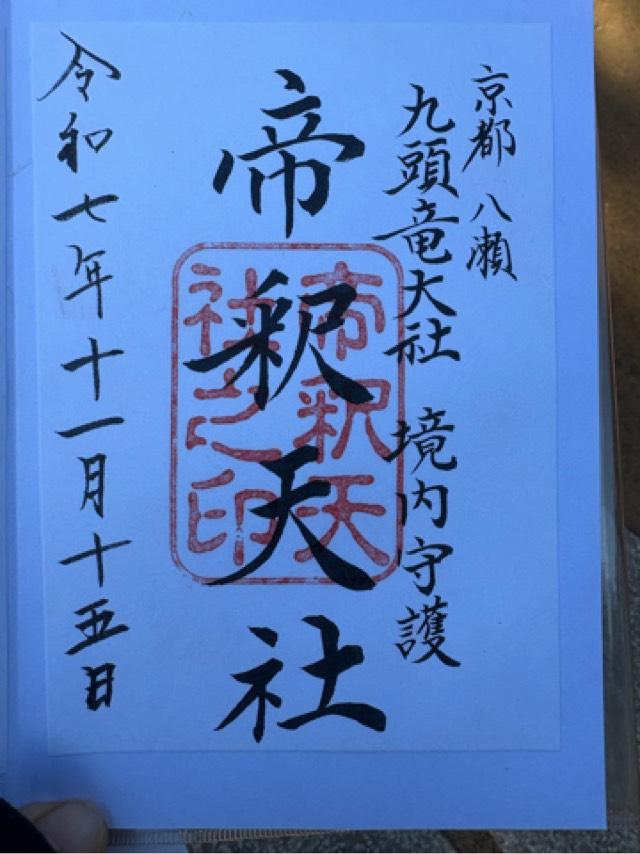 京都 八瀬
九頭竜大社 境内守護
帝釈天社
帝釈天
社之印
令和七年十一月十五日